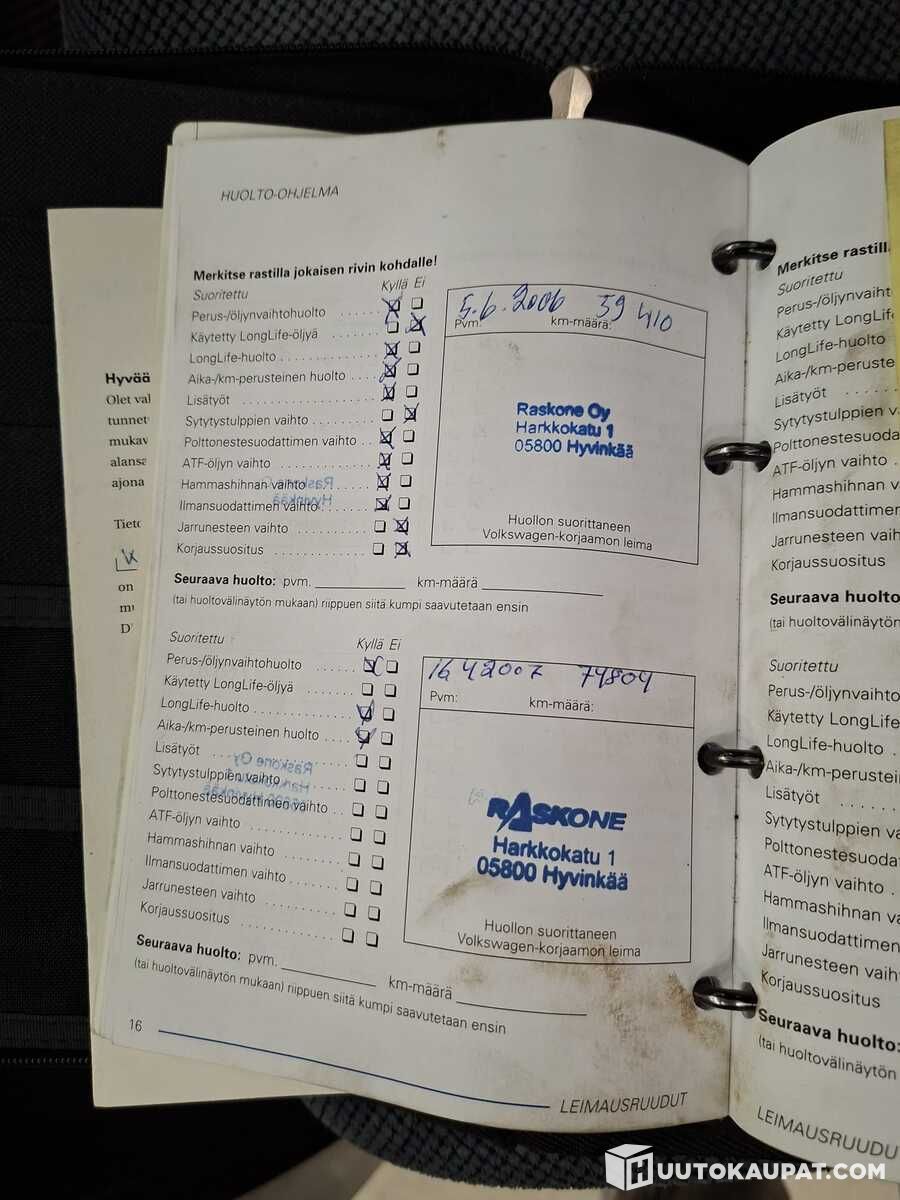 HUOLTO-OHJELMA
Merkitse rastilla jokaisen rivin kohdalle!
Suoritettu Kyllä Ei
Perus-/öljynvaihtohuolto
Käytetty LongLife-öljyä
LongLife-huolto
Aika-/km-perusteinen huolto
Lisätyöt
Sytytystulppien vaihto
Polttonestesuodattimen vaihto
ATF-öljyn vaihto
Hammashihnan vaihto
Ilmansuodattimen vaihto
Jarrunesteen vaihto
Korjaussuositus
5.6.2006 59 410
Pvm: km-määrä:
Raskone Oy
Harkkokatu 1
05800 Hyvinkää
Huollon suorittaneen
Volkswagen-korjaamon leima
Seuraava huolto: pvm. km-määrä
(tai huoltovälinäytön mukaan) riippuen siitä kumpi saavutetaan ensin
Suoritettu Kyllä Ei
Perus-/öljynvaihtohuolto
Käytetty LongLife-öljyä
LongLife-huolto
Aika-/km-perusteinen huolto
Lisätyöt
Sytytystulppien vaihto
Polttonestesuodattimen vaihto
ATF-öljyn vaihto
Hammashihnan vaihto
Ilmansuodattimen vaihto
Jarrunesteen vaihto
Korjaussuositus
16 4 2007 74804
Pvm: km-määrä:
RASKONE
Harkkokatu 1
05800 Hyvinkää
Huollon suorittaneen
Volkswagen-korjaamon leima
Seuraava huolto: pvm. km-määrä
(tai huoltovälinäytön mukaan) riippuen siitä kumpi saavutetaan ensin
16
LEIMAUSRUUDUT
Hyvää
Olet val
tunnet
mukav
alansa
ajona
Tieto
on
mu
Merkitse rastill
Suoritettu
Perus-/öljynvaiht
Käytetty LongLif
LongLife-huolto
Aika-/km-perustein
Lisätyöt
Sytytystulppien v
Polttonestesuoda
ATF-öljyn vaihto
Hammashihnan va
Ilmansuodattimen
Jarrunesteen vaih
Korjaussuositus
Seuraava huolto
(tai huoltovälinäytön
Suoritettu
Perus-/öljynvaihto
Käytetty LongLife
LongLife-huolto
Aika-/km-perustei
Lisätyöt
Sytytystulppien va
Polttonestesuoda
ATF-öljyn vaihto
Hammashihnan va
Ilmansuodattimen
Jarrunesteen vaih
Korjaussuositus
Seuraava huolto:
(tai huoltovälinäytön
LEIMAUSRUUDU
HUUTOKAUPAT.COM